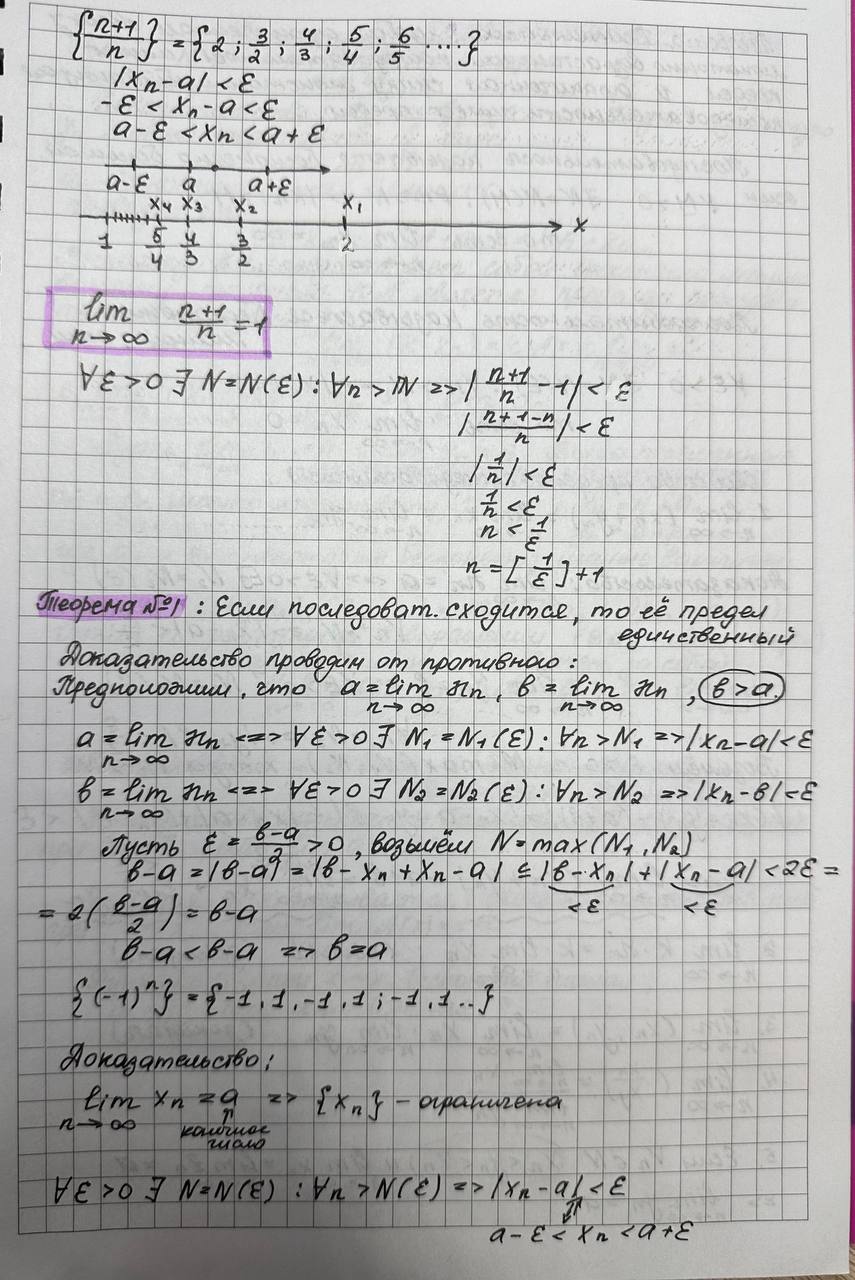 {n+1/n} = {2 ; 3/2 ; 4/3 ; 5/4 ; 6/5 ....}
|xₙ-a| < ε
-ε < xₙ-a < ε
a-ε < xₙ < a+ε
a-ε a a+ε
x₄ x₃ x₂ x₁
1 5/4 4/3 3/2 2 x
lim n→∞ n+1/n = 1
∀ε>0 ∃ N=N(ε) : ∀n>N => |n+1/n - 1| < ε
|n+1-n/n| < ε
|1/n| < ε
1/n < ε
n < 1/ε
n = [1/ε] + 1
Теорема №1 : Если последоват. сходится, то её предел
единственный
Доказательство проводим от противного :
Предположим, что a = lim n→∞ xₙ , в = lim n→∞ xₙ , в > a.
a = lim n→∞ xₙ <=> ∀ε>0 ∃ N₁=N₁(ε) : ∀n>N₁ => |xₙ-a| < ε
в = lim n→∞ xₙ <=> ∀ε>0 ∃ N₂=N₂(ε) : ∀n>N₂ => |xₙ-в| < ε
Пусть ε = в-a/2 > 0 , возьмём N = max(N₁, N₂)
в-a = |в-a| = |в - xₙ + xₙ - a| ≤ |в - xₙ| + |xₙ - a| < 2ε =
<ε <ε
= 2(в-a/2) = в-a
в-a < в-a => в=a
{(-1)ⁿ} = {-1, 1, -1, 1 ; -1, 1 ..}
Доказательство;
lim n→∞ xₙ = a => {xₙ} - ограничена
число
∀ε>0 ∃ N=N(ε) : ∀n>N(ε) => |xₙ-a| < ε
a-ε < xₙ < a+ε